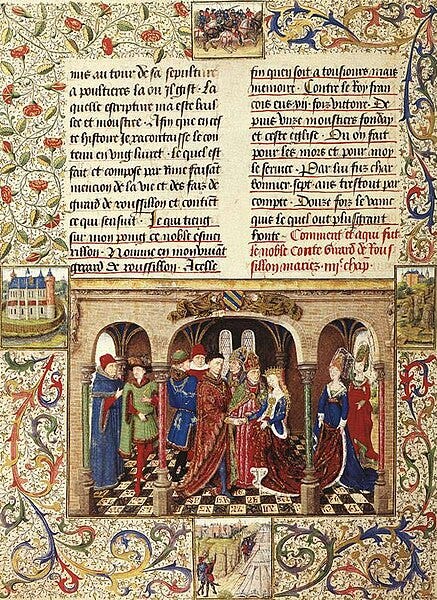 mis au tour de sa sepulture
a poultieres la ou Il gist . La
quelle escripture ma este bail
lee et monstree . Afin que en ces
te histoire Je racontaisse le con
tenu en vng liuret . le quel est
fait et compose par Rime faisant
mencion de la vie et des fais de
girard de roussillon et contient
ce qui sensuit . Je qui tieng
sur mon poing ce noble esme
rillon . Nomme en mon viuant
gerard de roussillon . A celle
fin quen soit a tousiours mais
memoire . Contre le Roy fran
cois eus vij . fois victoire . De
puis vnze monstiers fonday
et ceste eglise . Ou on fait
pour les mors et pour moy
le seruice . Par lui fus char
bonnier sept ans trestout par
compte . Douze fois le vainc
quis le quel ot plusgrant
honte . Comment et a qui fut
le noble Conte Girard de Rous
sillon mariez . chap .